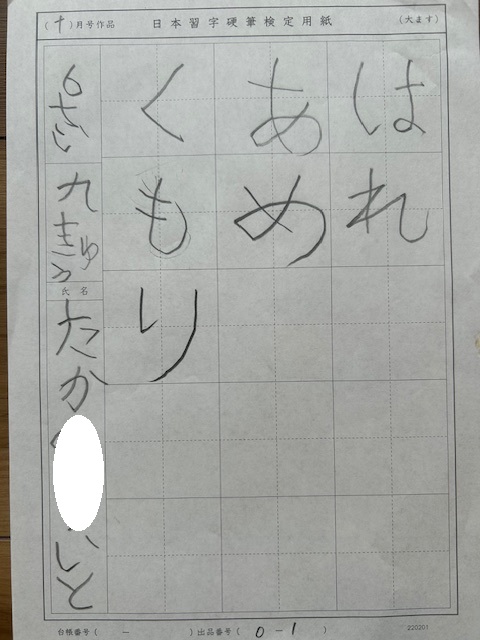 (十)月号作品 日本習字硬筆検定用紙 (大ます)
はれ
あめ
くもり
6さい
九きゅう
氏名
たか
いと
台帳番号( － )出品番号( 0－1 )
220201